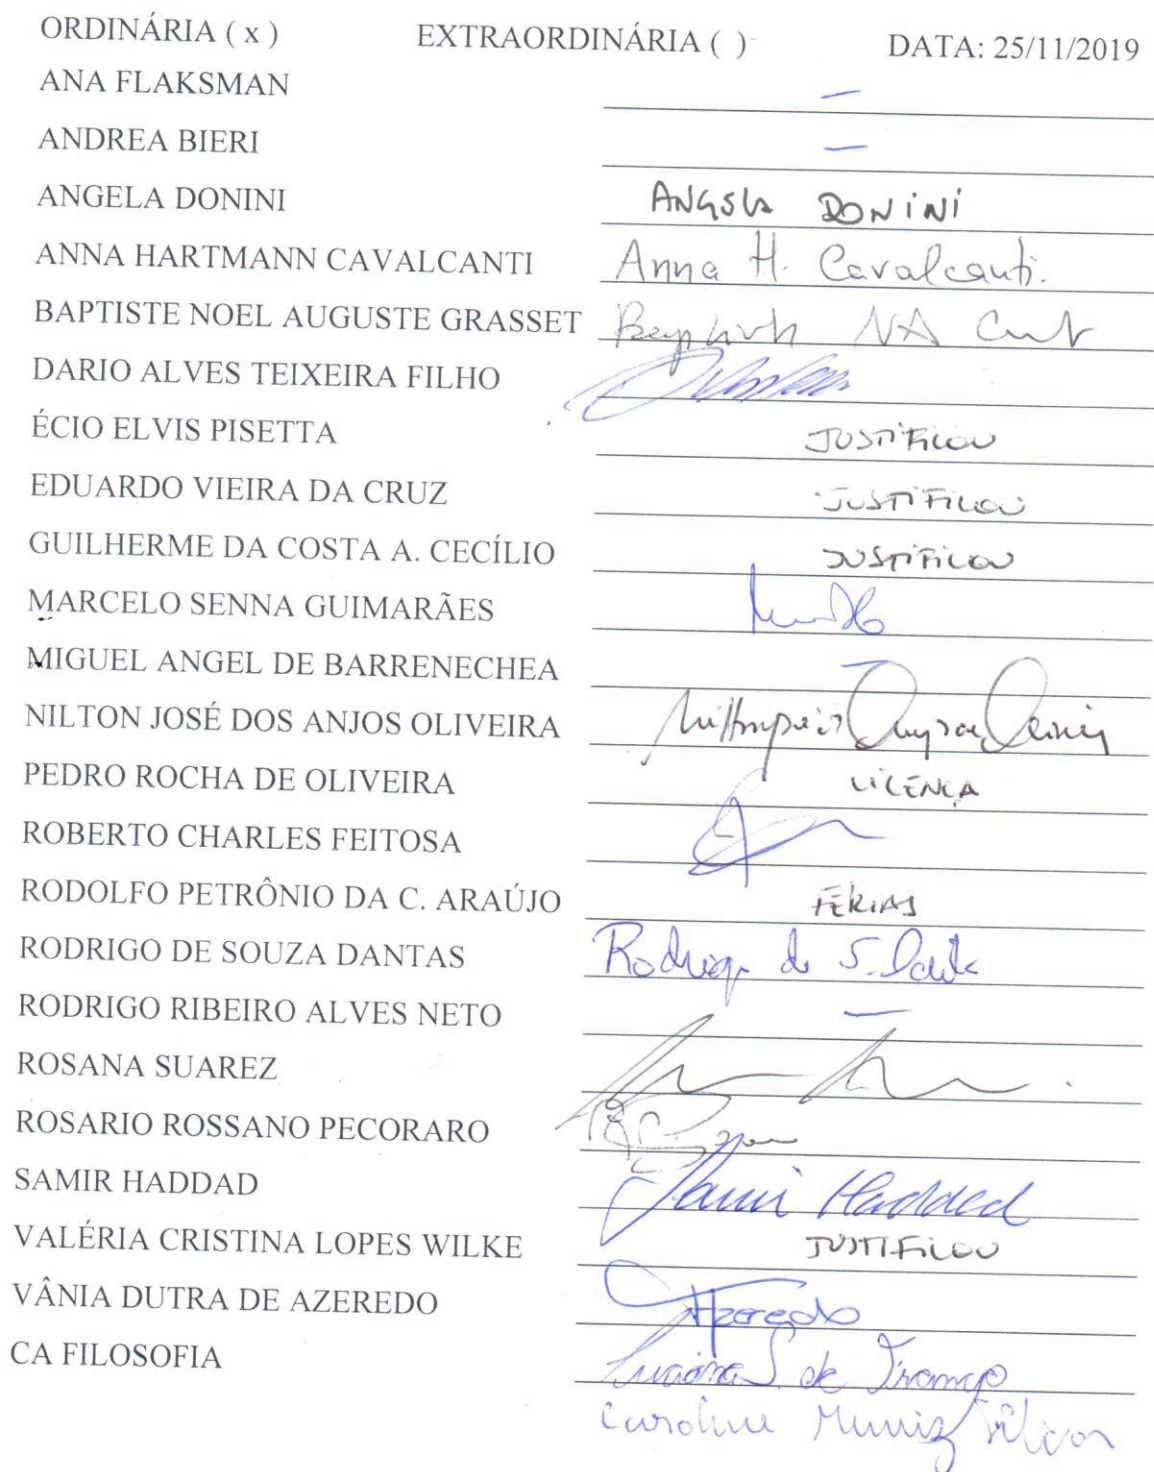 ORDINÁRIA ( x ) EXTRAORDINÁRIA ( ) DATA: 25/11/2019
ANA FLAKSMAN —
ANDREA BIERI —
ANGELA DONINI ANGELA DONINI
ANNA HARTMANN CAVALCANTI Anna H. Cavalcanti.
BAPTISTE NOEL AUGUSTE GRASSET NA
DARIO ALVES TEIXEIRA FILHO
ÉCIO ELVIS PISETTA JUSTIFICOU
EDUARDO VIEIRA DA CRUZ JUSTIFICOU
GUILHERME DA COSTA A. CECÍLIO JUSTIFICOU
MARCELO SENNA GUIMARÃES
MIGUEL ANGEL DE BARRENECHEA —
NILTON JOSÉ DOS ANJOS OLIVEIRA
PEDRO ROCHA DE OLIVEIRA LICENÇA
ROBERTO CHARLES FEITOSA
RODOLFO PETRÔNIO DA C. ARAÚJO FÉRIAS
RODRIGO DE SOUZA DANTAS Rodrigo de S. Dantas
RODRIGO RIBEIRO ALVES NETO —
ROSANA SUAREZ
ROSARIO ROSSANO PECORARO
SAMIR HADDAD Samir Haddad
VALÉRIA CRISTINA LOPES WILKE JUSTIFICOU
VÂNIA DUTRA DE AZEREDO Azeredo
CA FILOSOFIA de
Caroline Muniz